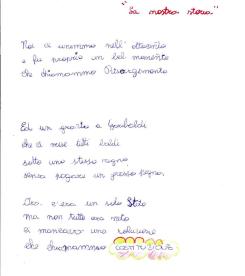 "La nostra storia"
Noi ci unimmo nell' ottocento
e fu proprio un bel momento
che chiamammo Risorgimento
Ed un grazie a Garibaldi
che ci rese tutti baldi
sotto uno stesso regno
senza pagare un grosso pegno.
Ora c'era un solo Stato
ma non tutto era nato
ci mancava una soluzione
che chiamammo COSTITUZIONE